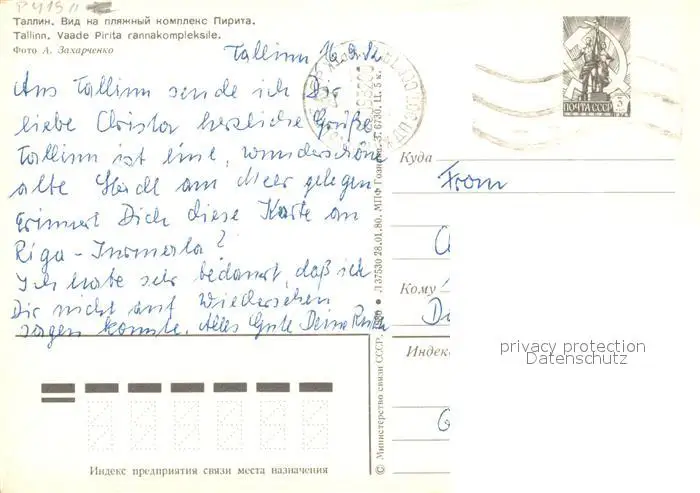 Таллин. Вид на пляжный комплекс Пирита.
Tallinn. Vaade Pirita rannakompleksile.
Фото А. Захарченко
Tallinn 16.9.82
Aus Tallinn sende ich Dir
liebe Christa herzliche Grüße
Tallinn ist eine, wunderschöne
alte Stadt am Meer gelegen
Erinnert Dich diese Karte an
Riga - Jurmala?
Ich habe sehr bedauert, daß ich
Dir nicht auf Wiedersehen
sagen konnte. Alles Gute Deine
Индекс предприятия связи места назначения
© Министерство связи СССР, 1980 • Л37530 28.01.80. МПФ Гознака. З. 6730. Ц. 5 к.
ПОЧТА СССР
Куда
Кому
Индекс
privacy protection
Datenschutz